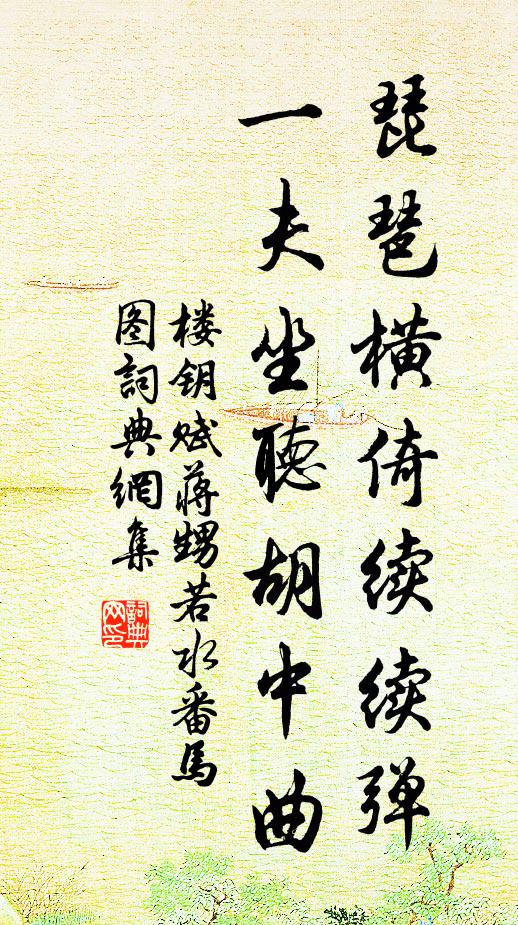 琵琶橫倚续续弹
一夫坐聽胡中曲
楼钥赋蒋甥若水番馬
图詞典網集
詞典
网印